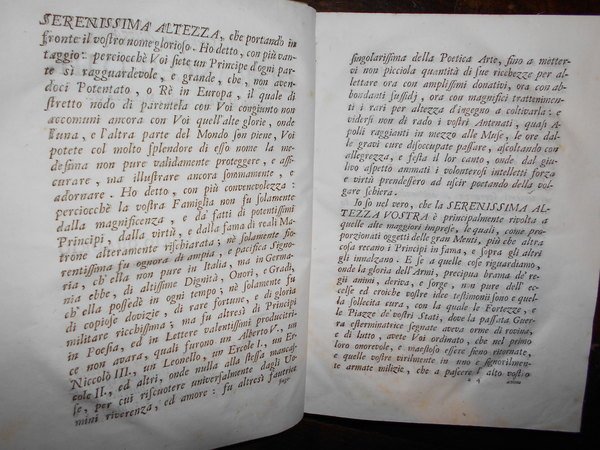 SERENISSIMA ALTEZZA, che portando in
fronte il vostro nome glorioso. Ho detto, con più van-
taggio: perciocchè Voi siete un Principe d'ogni par-
te sì ragguardevole, e grande, che, non aven-
doci Potentato, o Rè in Europa, il quale di
stretto nodo di parentela con Voi congiunto non
accomuni ancora con Voi quell'alte glorie, onde
l'una, e l'altra parte del Mondo son piene, Voi
potete col molto splendore di esso nome la me-
desima non pure validamente proteggere, e assi-
curare, ma illustrare ancora sommamente, e
adornare. Ho detto, con più convenevolezza:
perciocchè la vostra Famiglia non fu solamente
dalla magnificenza, e da' fatti di potentissimi
Principi, dalla virtù, e dalla fama di reali Ma-
trone altamente rischiarata; nè solamente fio-
rentissima fu ognora di ampia, e pacifica Signo-
ria, ch'ella non pure in Italia, ma in Germa-
nia ebbe, di altissime Dignità, Onori, e Gradi,
ch'ella possedè in ogni tempo; nè solamente fu
di copiose dovizie, di rare fortune, e di gloria
militare ricchissima; ma fu altresì di Principi
in Poesia, ed in Lettere valentissimi producitri-
ce non avara, quali furono un Alberto V., un
Niccolò III., un Leonello, un Ercole I., un Er-
cole II., ed altri, onde nulla alla stessa mancas-
se, per cui riscuotere universalmente dagli Uo-
mini riverenza, ed amore: fu altresì fautrice
singolarissima della Poetica Arte, sino a metter-
vi non picciola quantità di sue ricchezze per al-
lettare ora con amplissimi donativi, ora con ab-
bondanti sussidj, ora con magnifici trattenimen-
ti i rari per altezza d'ingegno a coltivarla: e
vidersi non di rado i vostri Antenati, quasi A-
polli raggianti in mezzo alle Muse, le ore dal-
le gravi cure disoccupate passare, ascoltando con
allegrezza, e festa il lor canto, onde dal giu-
livo aspetto animati i volonterosi intelletti forza
e virtù prendessero ad uscir portando della vol-
gare schiera.
Io so nel vero, che la SERENISSIMA AL-
TEZZA VOSTRA è principalmente rivolta a
quelle alte maggiori imprese, le quali, come pro-
porzionati oggetti delle gran Menti, più che altra
cosa recano i Principi in fama, e sopra gli altri
gl'innalzano. E se a quelle cose riguardiamo,
onde la gloria dell'Armi, precipua brama de' re-
gii animi, deriva, e sorge, non pure dell'ec-
celse ed eroiche vostre idee testimonii sono e quel-
la sollecita cura, con la quale le Fortezze, e
le Piazze de' vostri Stati, dove la passata Guer-
ra esterminatrice segnate aveva orme di rovina,
e di lutto, avete Voi ordinato, che nel primo
loro onorevole, e maestoso essere sieno ritornate,
e quelle vostre virilmente in uno e signorilmen-
te armate milizie, che a pascere l'alto vostro